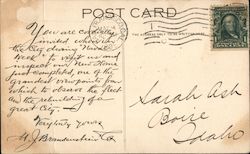 POST CARD
You are cordially
invited when in
the City during Naval
Week to visit us and
inspect our New Home
just completed, one of the
grandest viewpoints from
which to observe the fleet
and the rebuilding of a
great City.
Very truly yours
M. J. Brandenstein & Co
Sarah Ash
Boise
Idaho